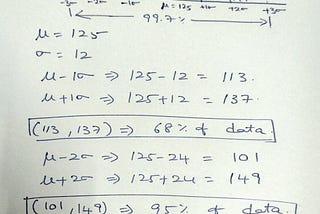 -3σ -2σ -1σ μ=125 +1σ +2σ +3σ
99.7%
μ = 125
σ = 12
μ-1σ ⇒ 125-12 = 113.
μ+1σ ⇒ 125+12 = 137.
(113, 137) ⇒ 68% of data.
μ-2σ ⇒ 125-24 = 101
μ+2σ ⇒ 125+24 = 149
(101, 149) ⇒ 95% of data.